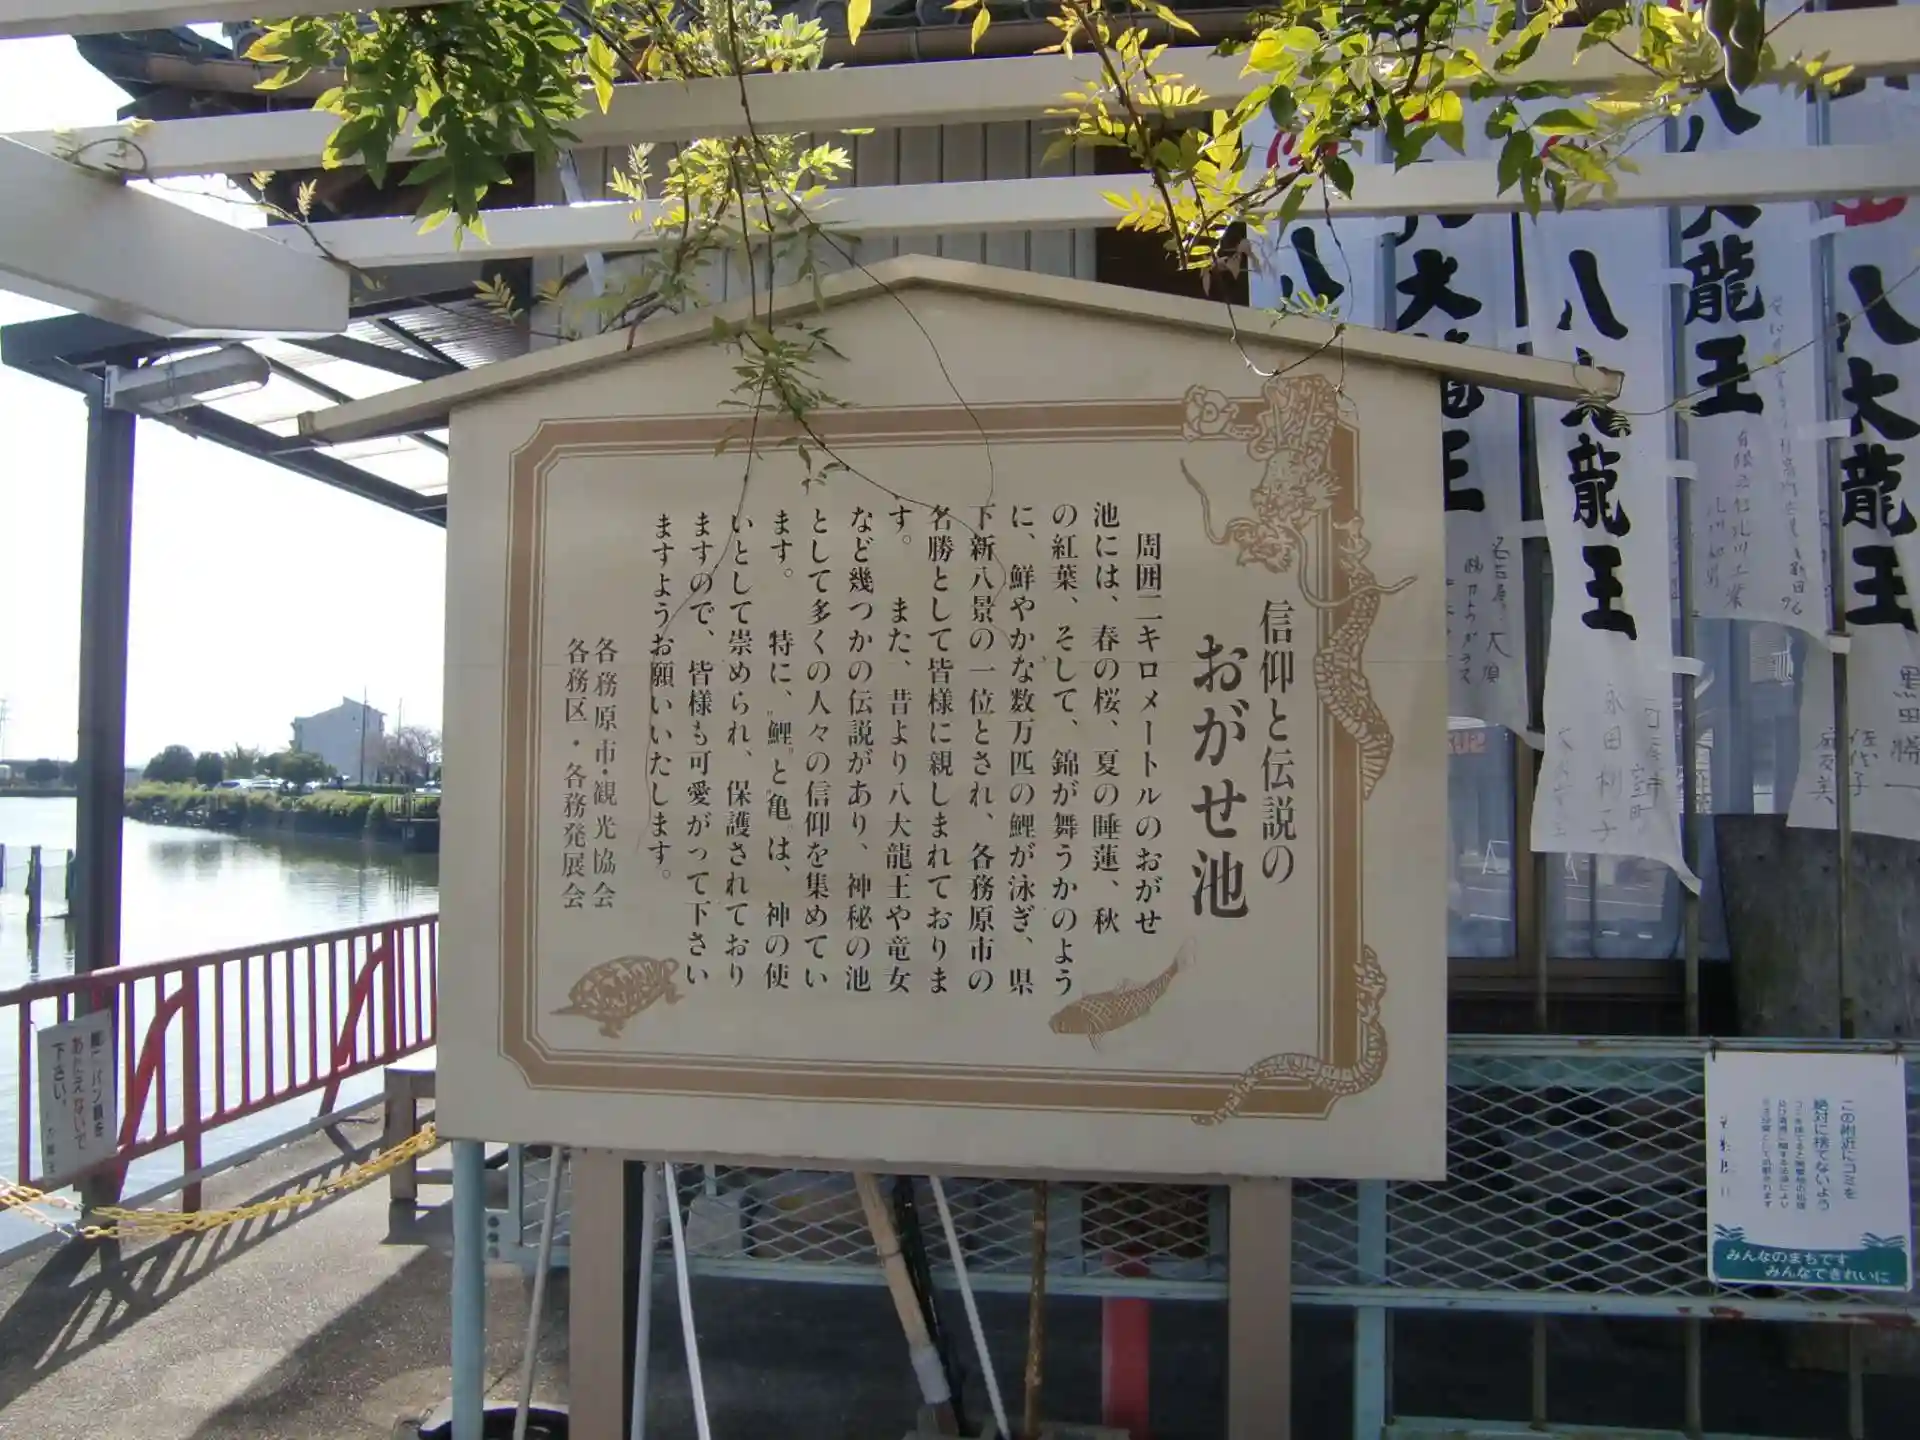 信仰と伝説の
おがせ池
周囲二キロメートルのおがせ
池には、春の桜、夏の睡蓮、秋
の紅葉、そして、錦が舞うかのよう
に、鮮やかな数万匹の鯉が泳ぎ、県
下新八景の一位とされ、各務原市の
名勝として皆様に親しまれておりま
す。　また、昔より八大龍王や竜女
など幾つかの伝説があり、神秘の池
として多くの人々の信仰を集めてい
ます。　特に、"鯉"と"亀"は、神の使
いとして崇められ、保護されており
ますので、皆様も可愛がって下さい
ますようお願いいたします。
各務原市・観光協会
各務区・各務発展会
八大龍王
八大龍王
八大龍王
大龍王
八
永田利子
パン類を
あたえないで
下さい。
この附近にゴミを
絶対に捨てないよう
みんなのまちです
みんなできれいに